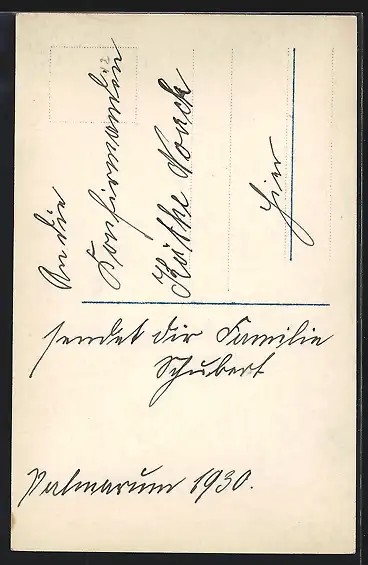 An die
Konfirmandin
Käthe Noack
Hier
sendet dir Familie
Schubert
Palmarum 1930.